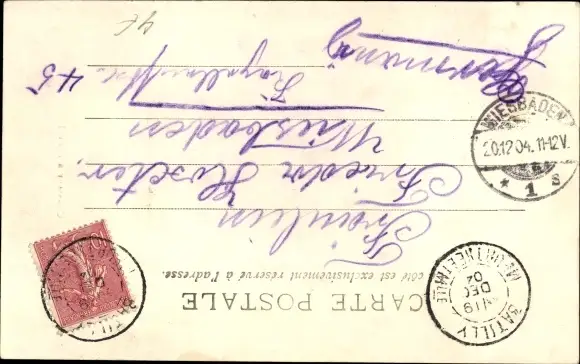 CARTE POSTALE
côté est exclusivement réservé à l'adresse.
Fräulein
Frieda
Wiesbaden
45
Germany
WIESBADEN
20.12.04. 11-12V.
* 1 s
BATILLY
MEURTHE-ET-MLLE
19
DEC
04